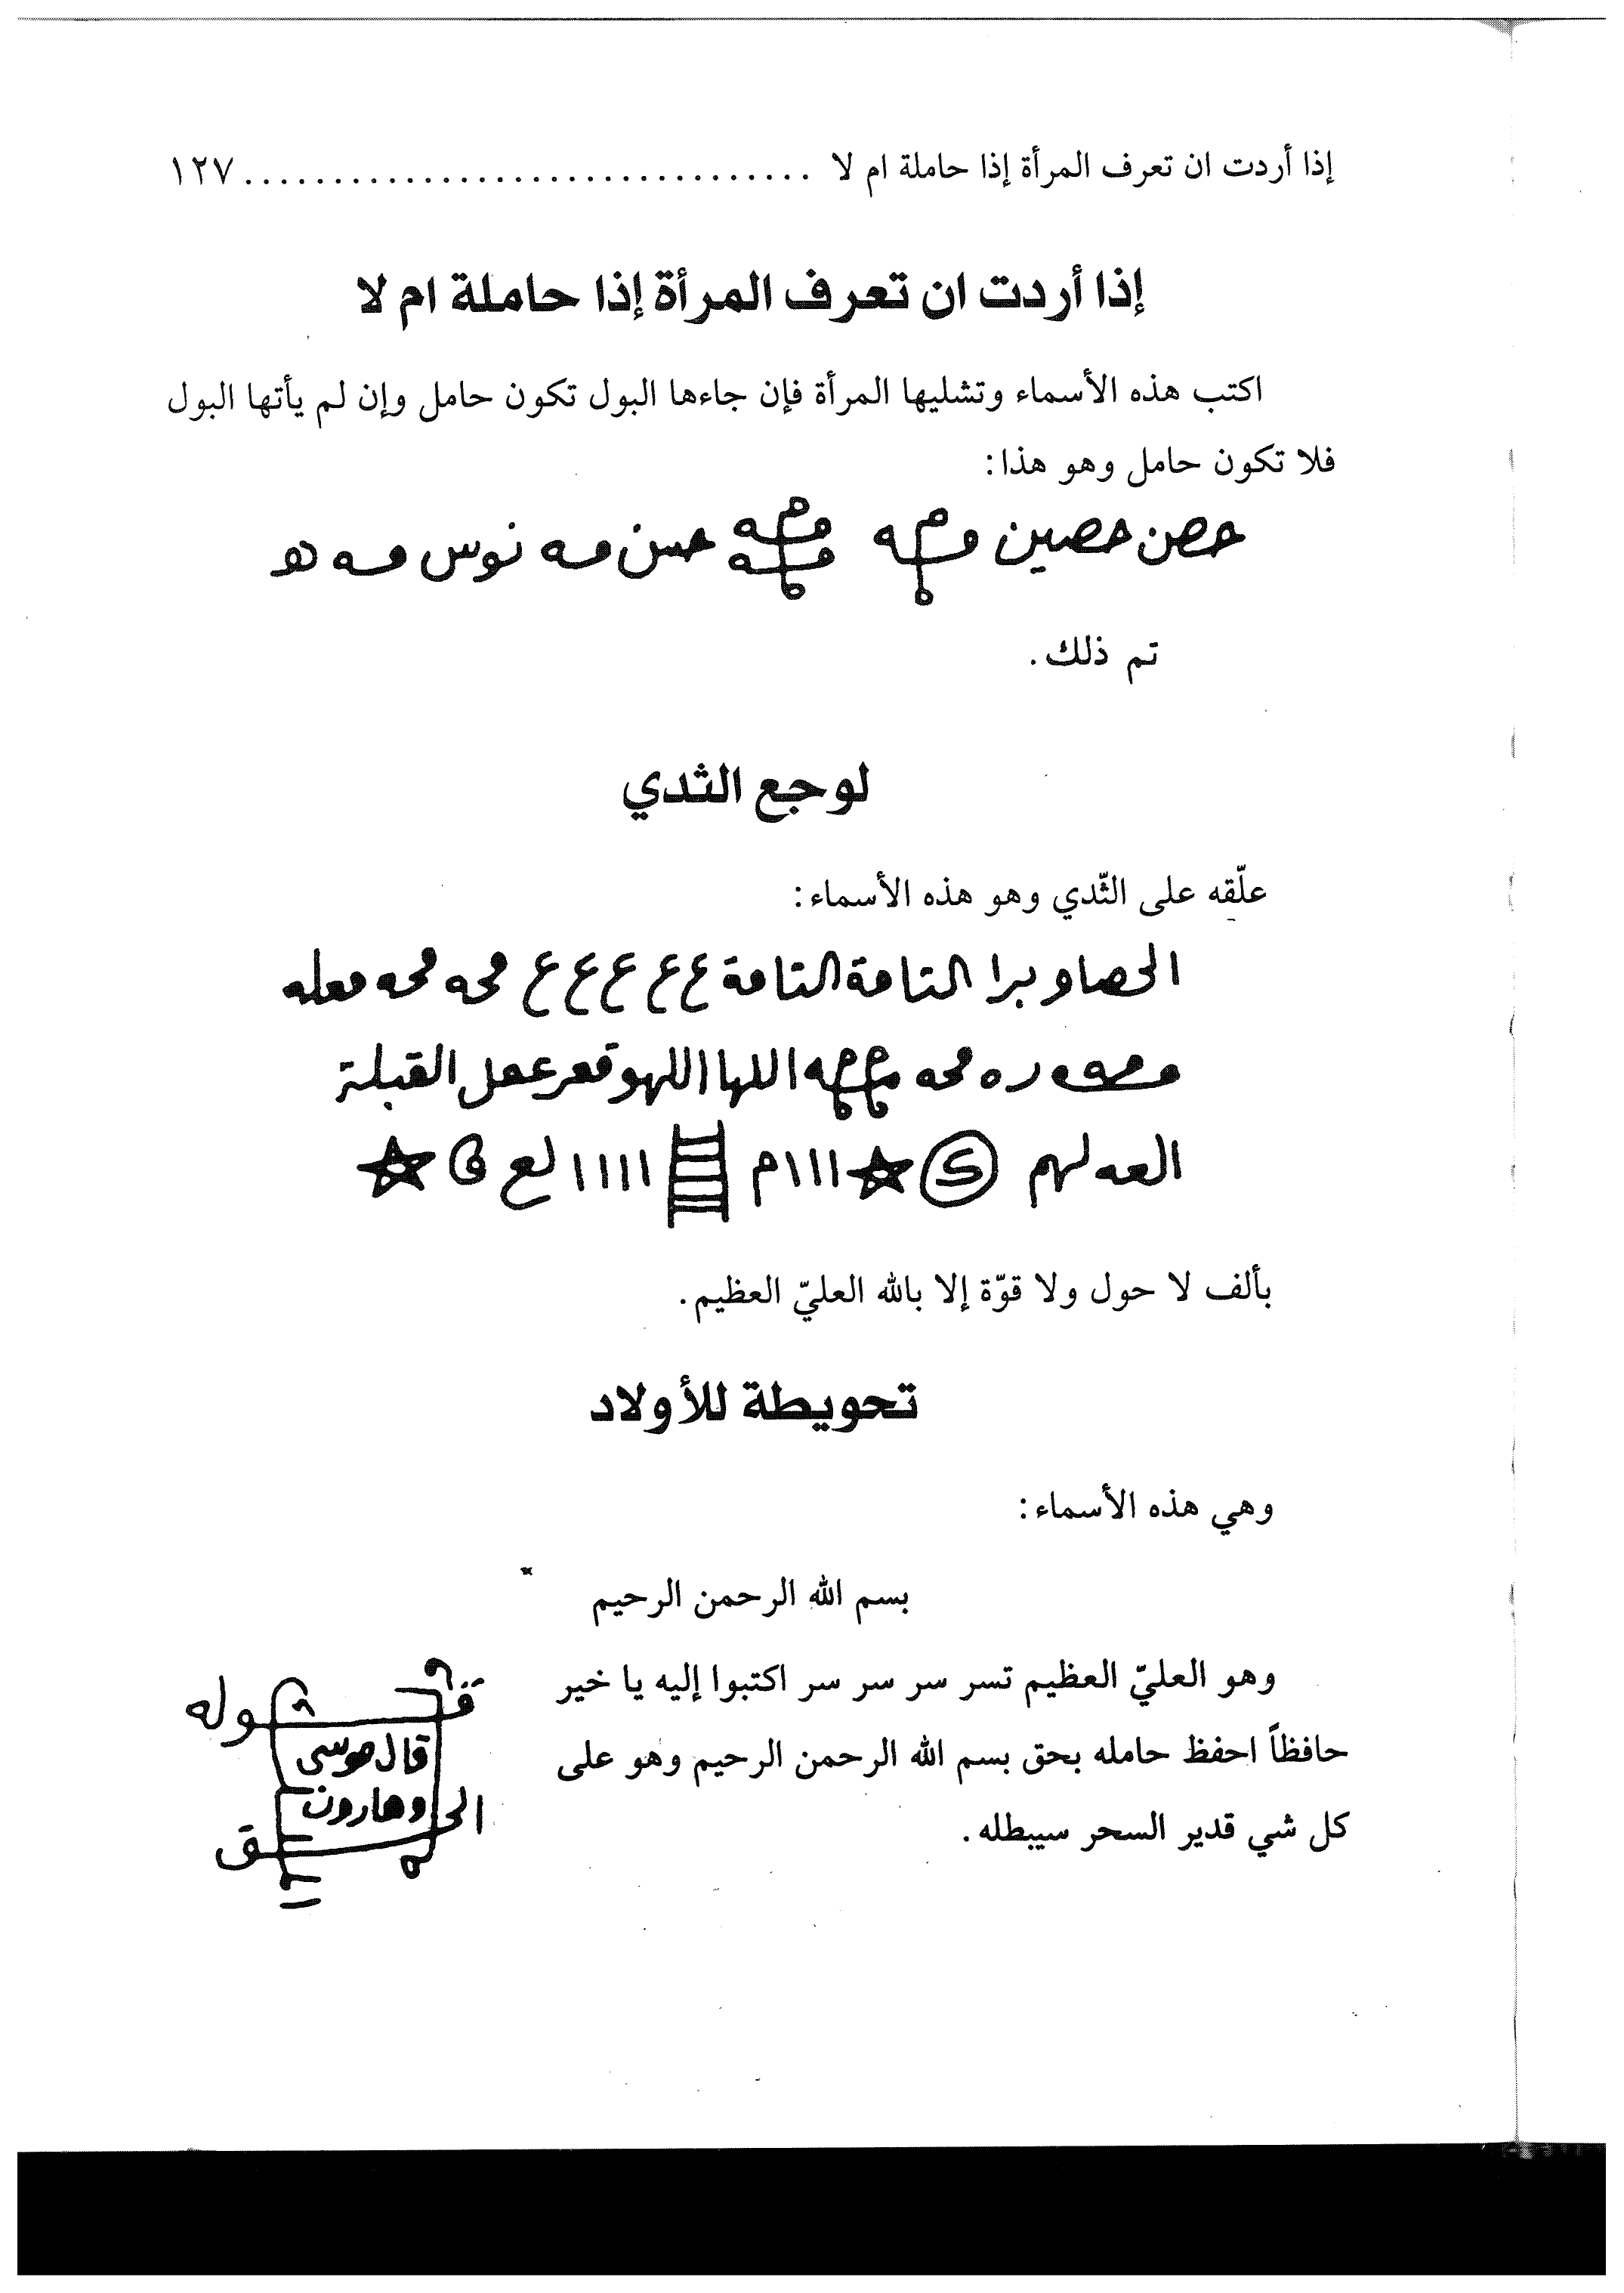 إذا أردت ان تعرف المرأة إذا حاملة ام لا ................................ ١٢٧
إذا أردت ان تعرف المرأة إذا حاملة ام لا
اكتب هذه الأسماء وتشليها المرأة فإن جاءها البول تكون حامل وإن لم يأتها البول
فلا تكون حامل وهو هذا:
حصن حصين حسن مه نوس مه
تم ذلك.
لوجع الثدي
علّقه على الثّدي وهو هذه الأسماء:
التامة التامة ع ع ع ع ع
اللها اللهو القبلة
العه لهم ١١١م ١١١١ لع
بألف لا حول ولا قوّة إلا بالله العليّ العظيم.
تحويطة للأولاد
وهي هذه الأسماء:
بسم الله الرحمن الرحيم
وهو العليّ العظيم تسر سر سر سر اكتبوا إليه يا خير
حافظاً احفظ حامله بحق بسم الله الرحمن الرحيم وهو على
كل شي قدير السحر سيبطله.
قوله
قال موسى
وهارون
الحق